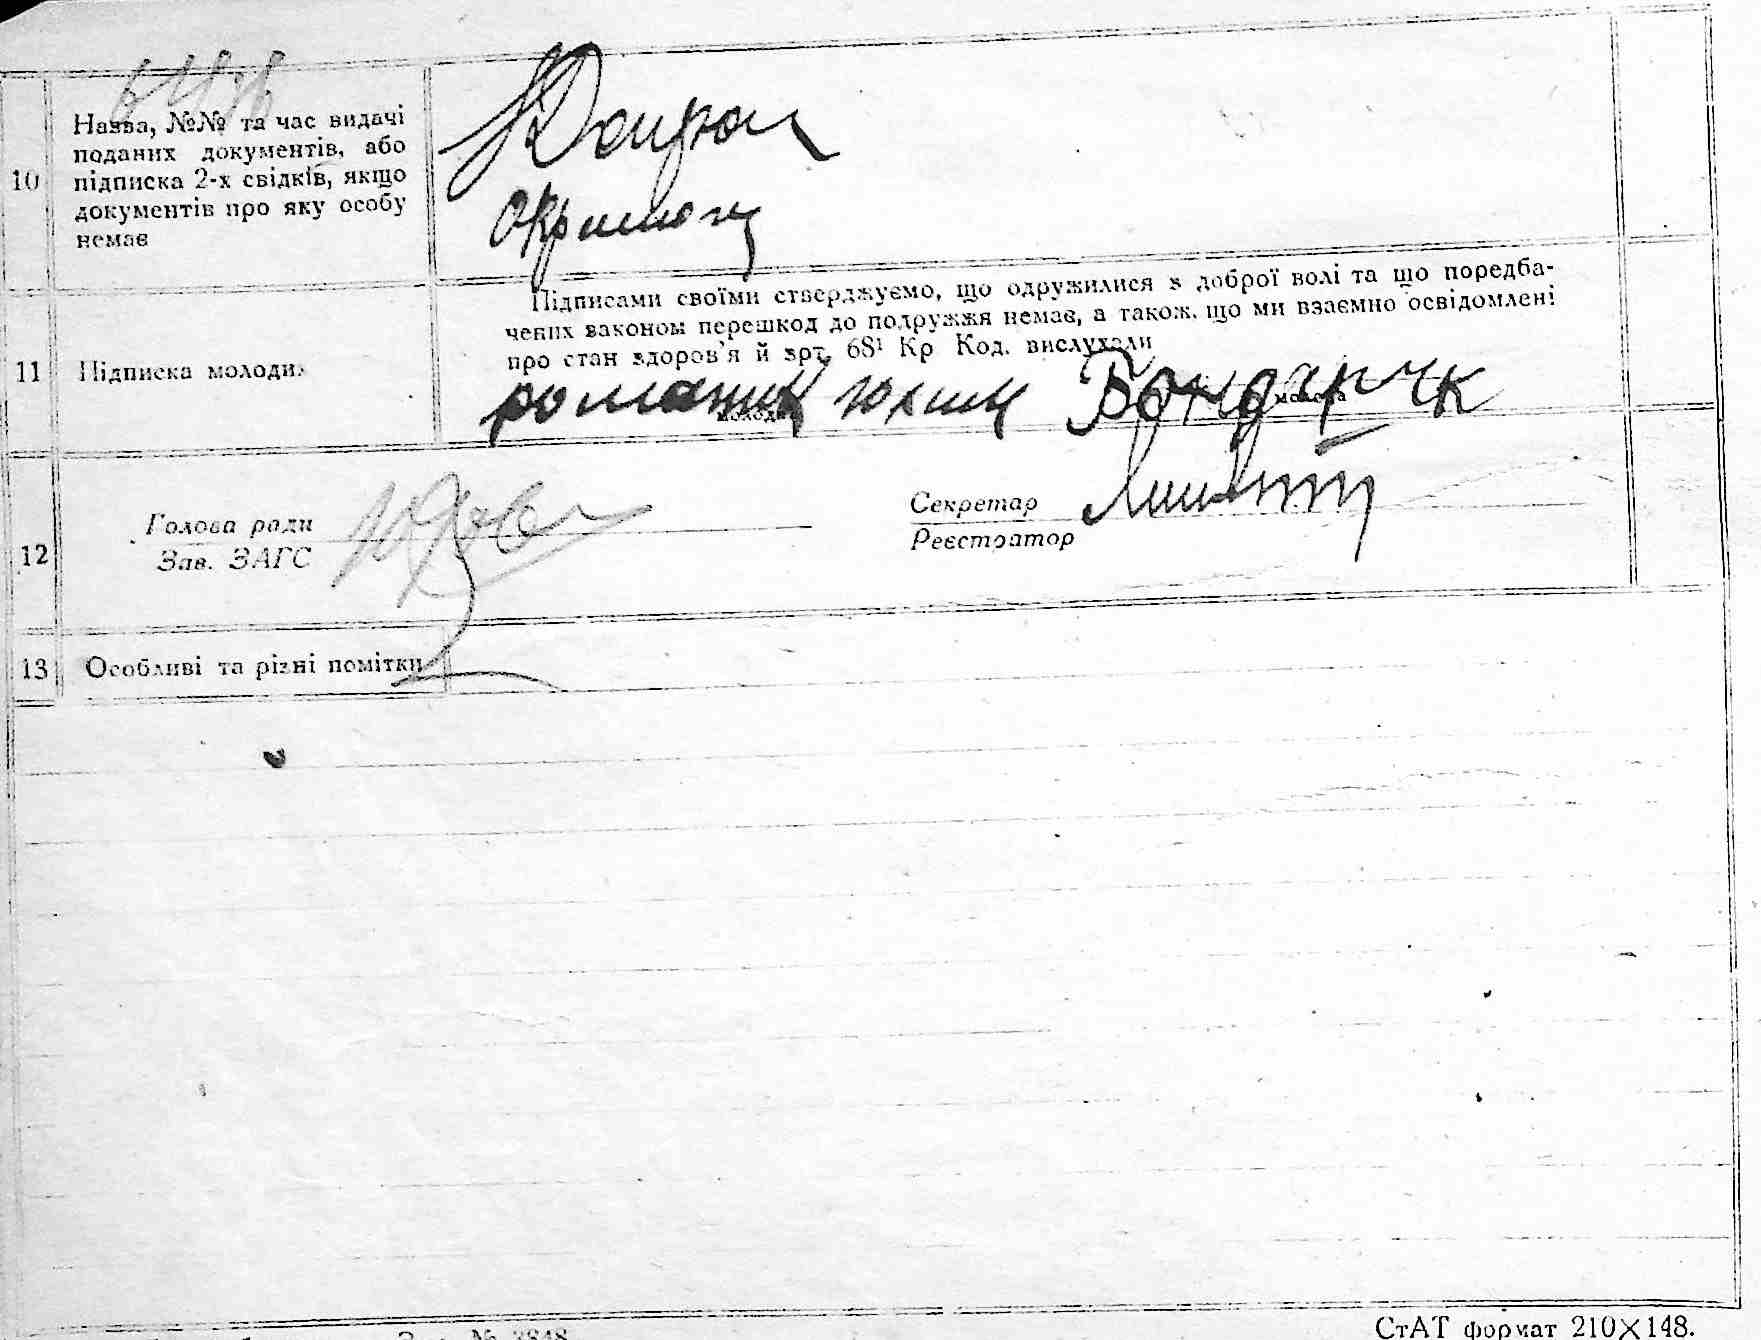 10
Назва, №№ та час видачі
поданих документів, або
підписка 2-х свідків, якщо
документів про яку особу
немає
11
Підписка молодих
Підписами своїми стверджуємо, що одружилися з доброї волі та що поредба-
чених законом перешкод до подружжя немає, а також, що ми взаємно освідомлені
про стан здоров'я й арт. 68¹ Кр Код. вислухали
романик юхим Бондарчк
молода
12
Голова ради
Зав. ЗАГС
Секретар
Реєстратор
13
Особливі та різні помітки
№ 3848
СтАТ формат 210×148.